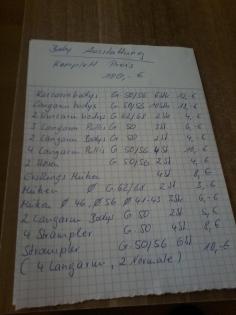 Baby Ausstattung
Komplett Preis
180,- €
Kurzarmbodys G. 50/56 6St 12,-€
Langarmbodys G. 50/56 10St
2 Kurzarmbodys G. 62/68 2St 4,-€
3 Langarm Pullis G. 50 3St 6,-€
2 Langarm Body G. 50 2St 4,-€
4 Langarm Pullis G. 50/56 4St 10,-€
2 Hosen G. 50/56 2St 4,-€
Erstlings Mützen 4St 8,-€
Mützen Ø G. 62/68 2St 3,-€
Mützen Ø 46, Ø 56 Ø 41-43 3St 6,-€
2 Langarm Bodys G. 50 2St 5,-€
4 Strampler G. 50 4St 8,-€
Strampler G. 50/56 6St 10,-€
( 4 Langarm, 2 Normale )